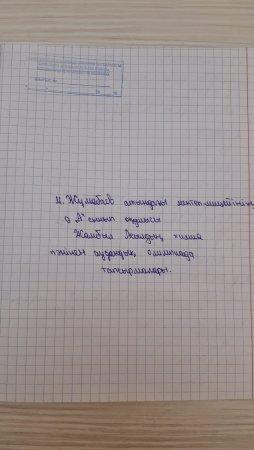 М. Жумабаев атындағы мектеп-лицейінің
9 "А" сынып оқушысы
Жамбыл химия
пәнінен аудандық олимпиада
тапсырмалары.